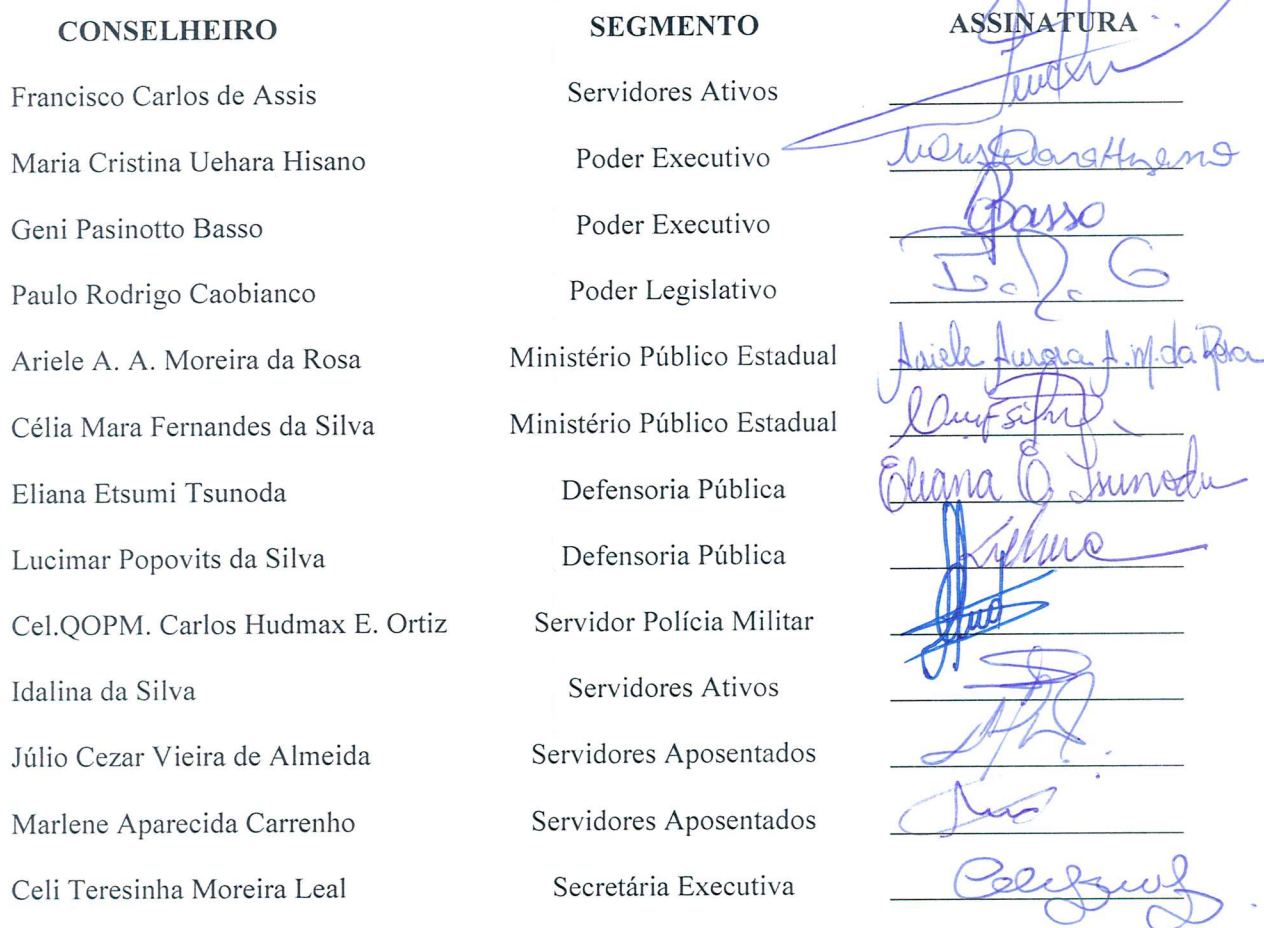 CONSELHEIRO SEGMENTO ASSINATURA
Francisco Carlos de Assis Servidores Ativos
Maria Cristina Uehara Hisano Poder Executivo
Geni Pasinotto Basso Poder Executivo Basso
Paulo Rodrigo Caobianco Poder Legislativo
Ariele A. A. Moreira da Rosa Ministério Público Estadual Ariele Aurora A. M. da Rosa
Célia Mara Fernandes da Silva Ministério Público Estadual
Eliana Etsumi Tsunoda Defensoria Pública Eliana E. Tsunoda
Lucimar Popovits da Silva Defensoria Pública
Cel.QOPM. Carlos Hudmax E. Ortiz Servidor Polícia Militar
Idalina da Silva Servidores Ativos
Júlio Cezar Vieira de Almeida Servidores Aposentados
Marlene Aparecida Carrenho Servidores Aposentados
Celi Teresinha Moreira Leal Secretária Executiva